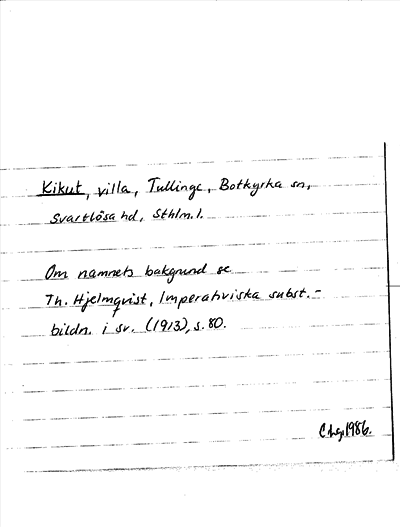 Kikut, villa, Tullinge, Botkyrka sn,
Svartlösa hd, Sthlm. l.
Om namnets bakgrund se
Th. Hjelmqvist, Imperativiska subst.-
bildn. i sv. (1913), s. 80.
1986.